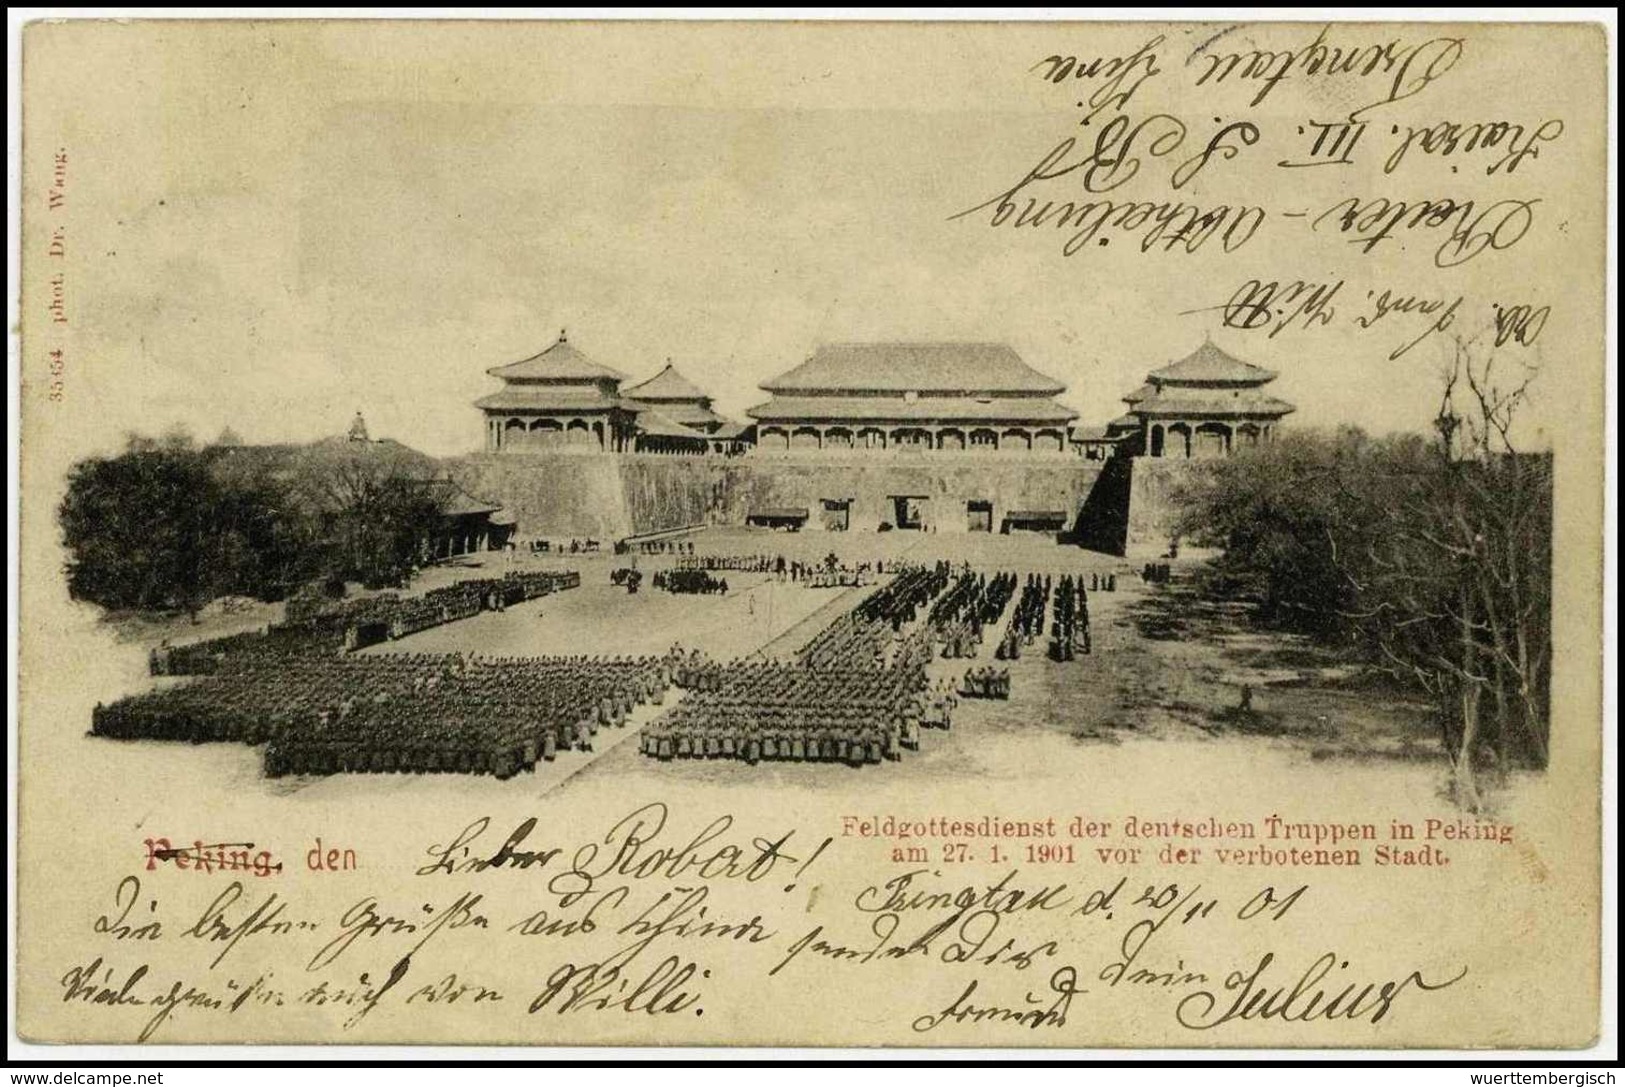 35354 phot. Dr. Wang.
Tsingtau China
Kaisal. III. S. B.
Reiter-Abtheilung
Witt
Feldgottesdienst der deutschen Truppen in Peking
am 27. 1. 1901 vor der verbotenen Stadt.
Peking, den
Lieber Robert!
Tsingtau d. 20/11 01
Die besten Grüße aus China sendet Dir Dein
Viele Grüße auch von Willi. Freund Julius
wuerttembergisch